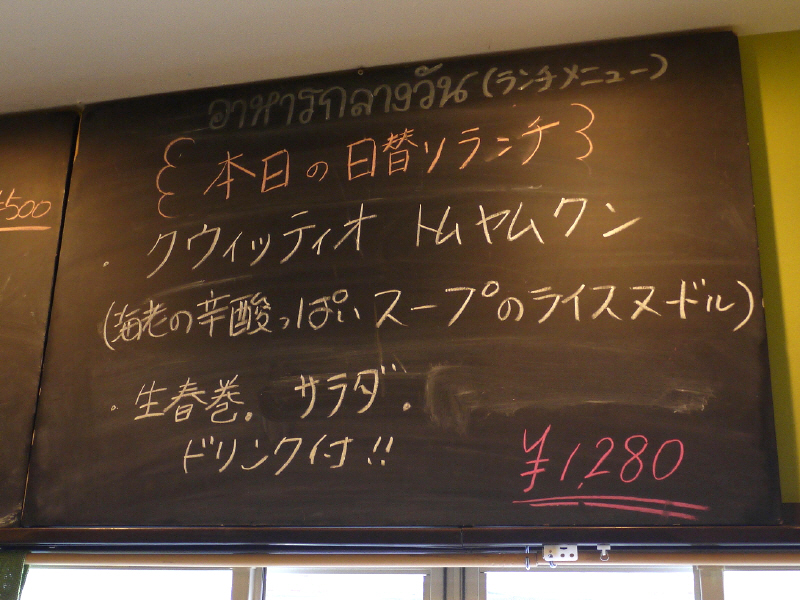 อาหารกลางวัน (ランチメニュー)
本日の日替りランチ
・クウィッティオ トムヤムクン
(海老の辛酸っぱいスープのライスヌードル)
・生春巻。サラダ。
ドリンク付!!
¥1,280
¥500